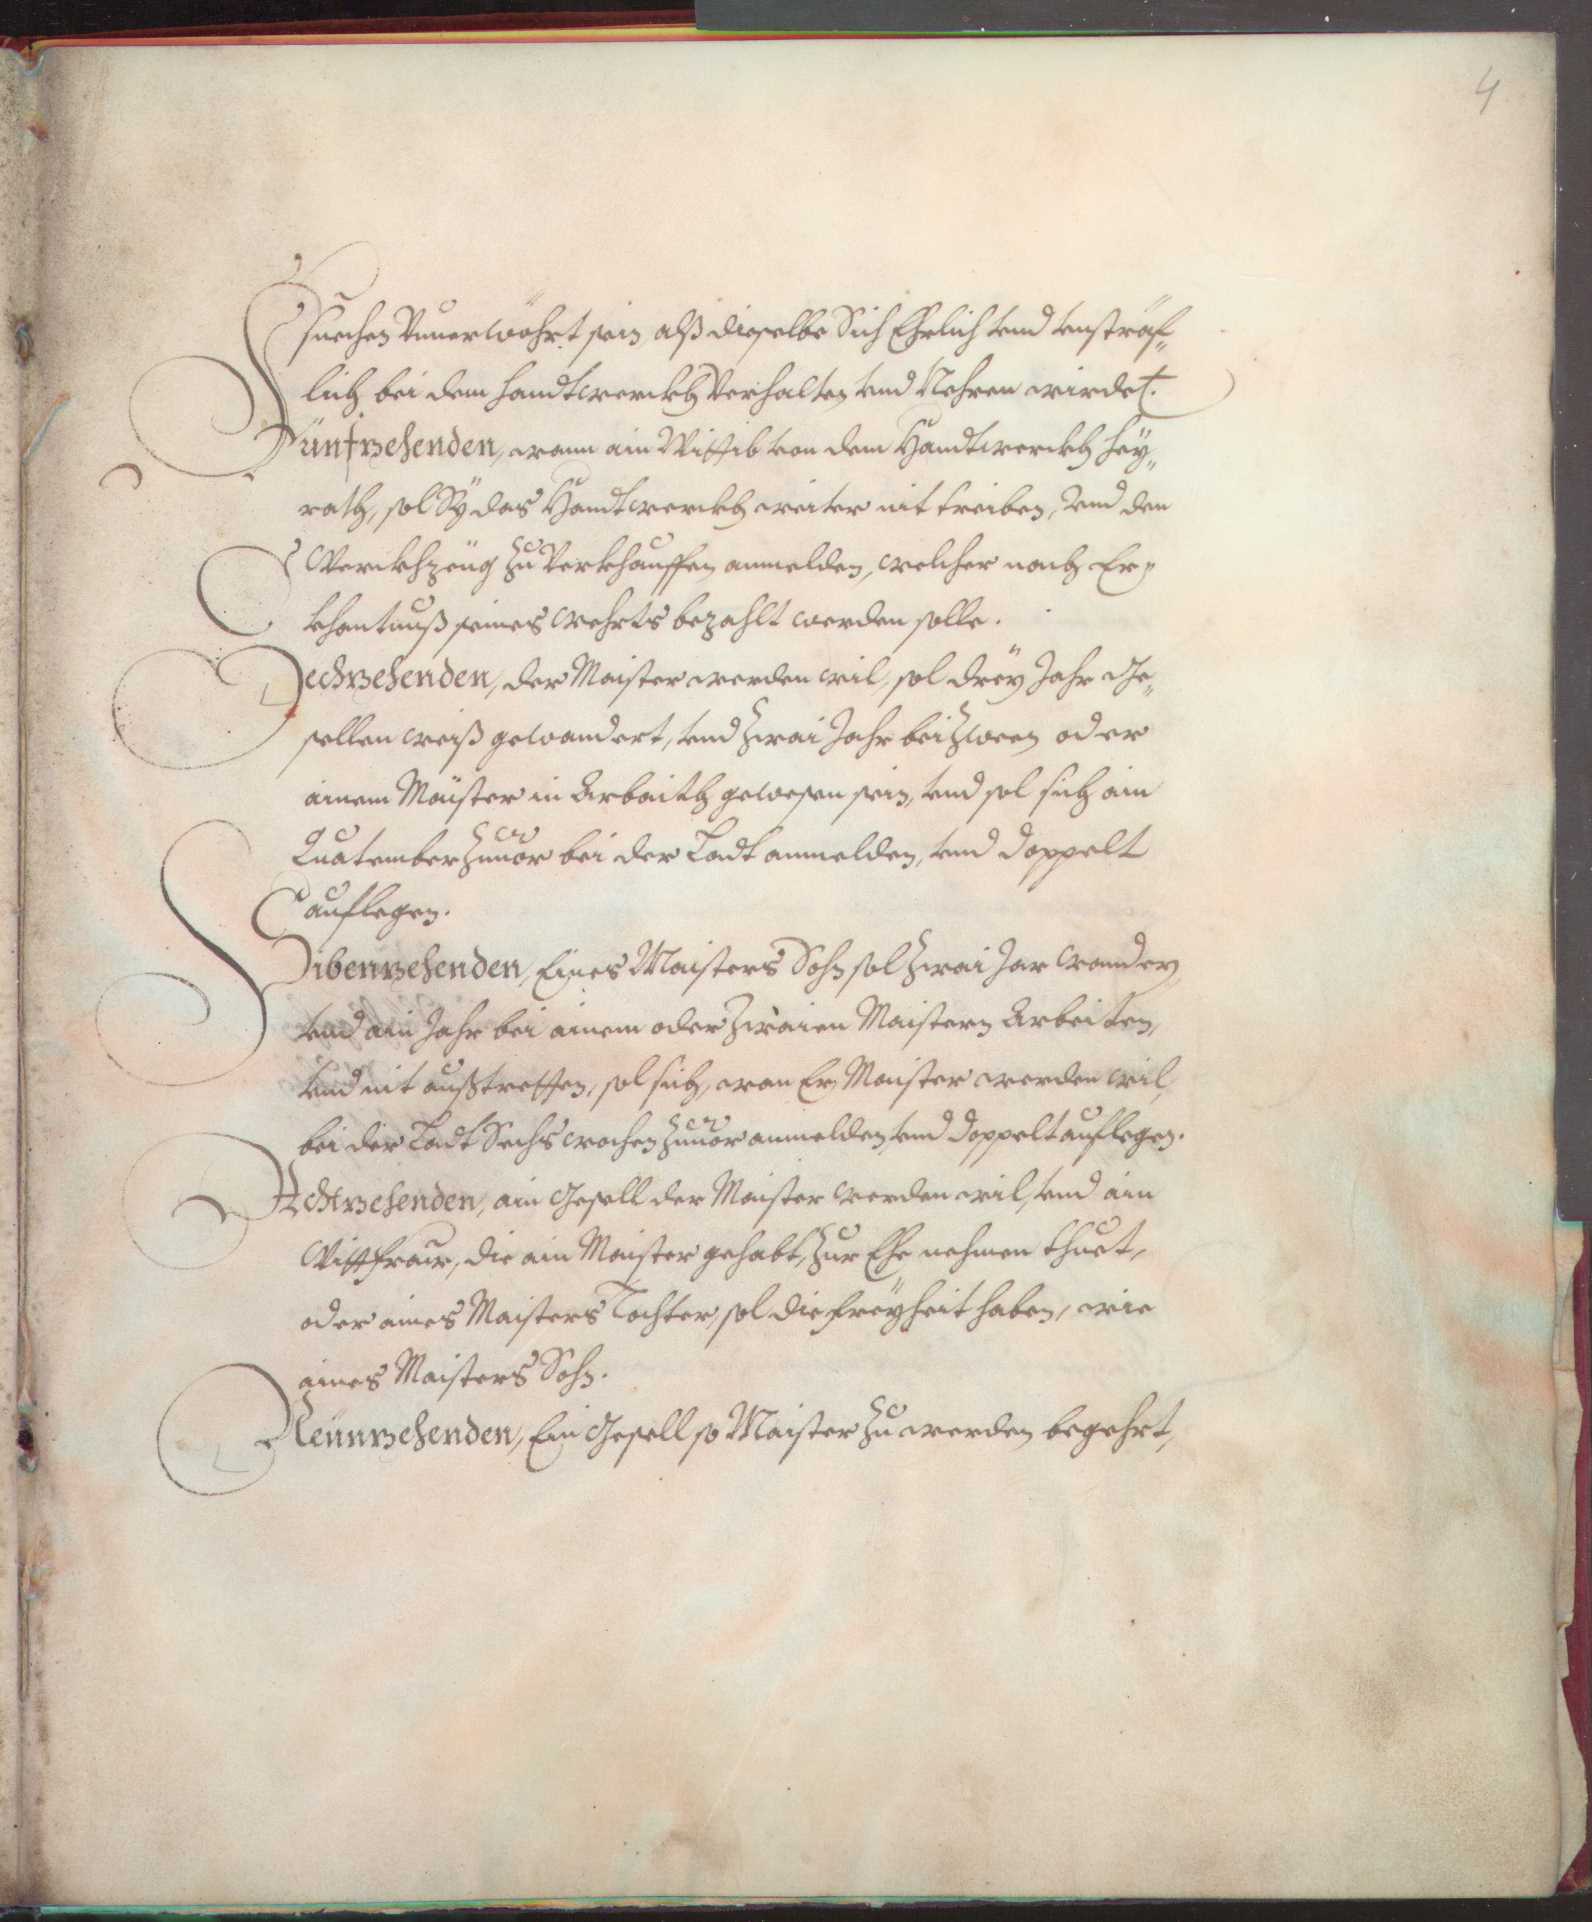 4
suechen Vnuerwöhrt sein, alß dieselbe Sich Ehrlich vnd vnsträf„
lich bei dem handtwerckh Verhalten vnd Nehren wirdet.
Fünfzehenden, wann ain Wittib von dem Handtwerckh hey„
rath, sol Sÿ das Handtwerckh weiter nit treiben, Vnd den
Werckhzeüg zu Verkhauffen anmelden, welcher nach Er„
khantnuß seines Wehrts bezahlt werden solle.
Sechzehenden, der Maister werden wil, sol dreÿ Jahr Ge„
sellen weiß gewandert, vnd zwai Jahr bei zween oder
ainem Maister in Arbaith gewesen sein, vnd sol sich ain
Quatember zuuor bei der Ladt anmelden, vnd doppelt
auflegen.
Sibenzehenden, Eines Maisters Sohn sol zwai Jar wandern
vnd ain Jahr bei ainem oder zwaien Maistern Arbeiten,
vnd nit außtretten, sol sich, wan Er Maister werden wil,
bei der Ladt Sechs wochen zuuor anmelden, vnd doppelt auflegen.
Achtzehenden, ain Gesell der Maister werden wil, vnd ain
Wittfraw, die ain Maister gehabt, zur Ehe nehmen thuet,
oder aines Maisters Tochter, sol die freÿheit haben, wie
aines Maisters Sohn.
Neünzehenden, Ein Gesell so Maister zu werden begehrt,